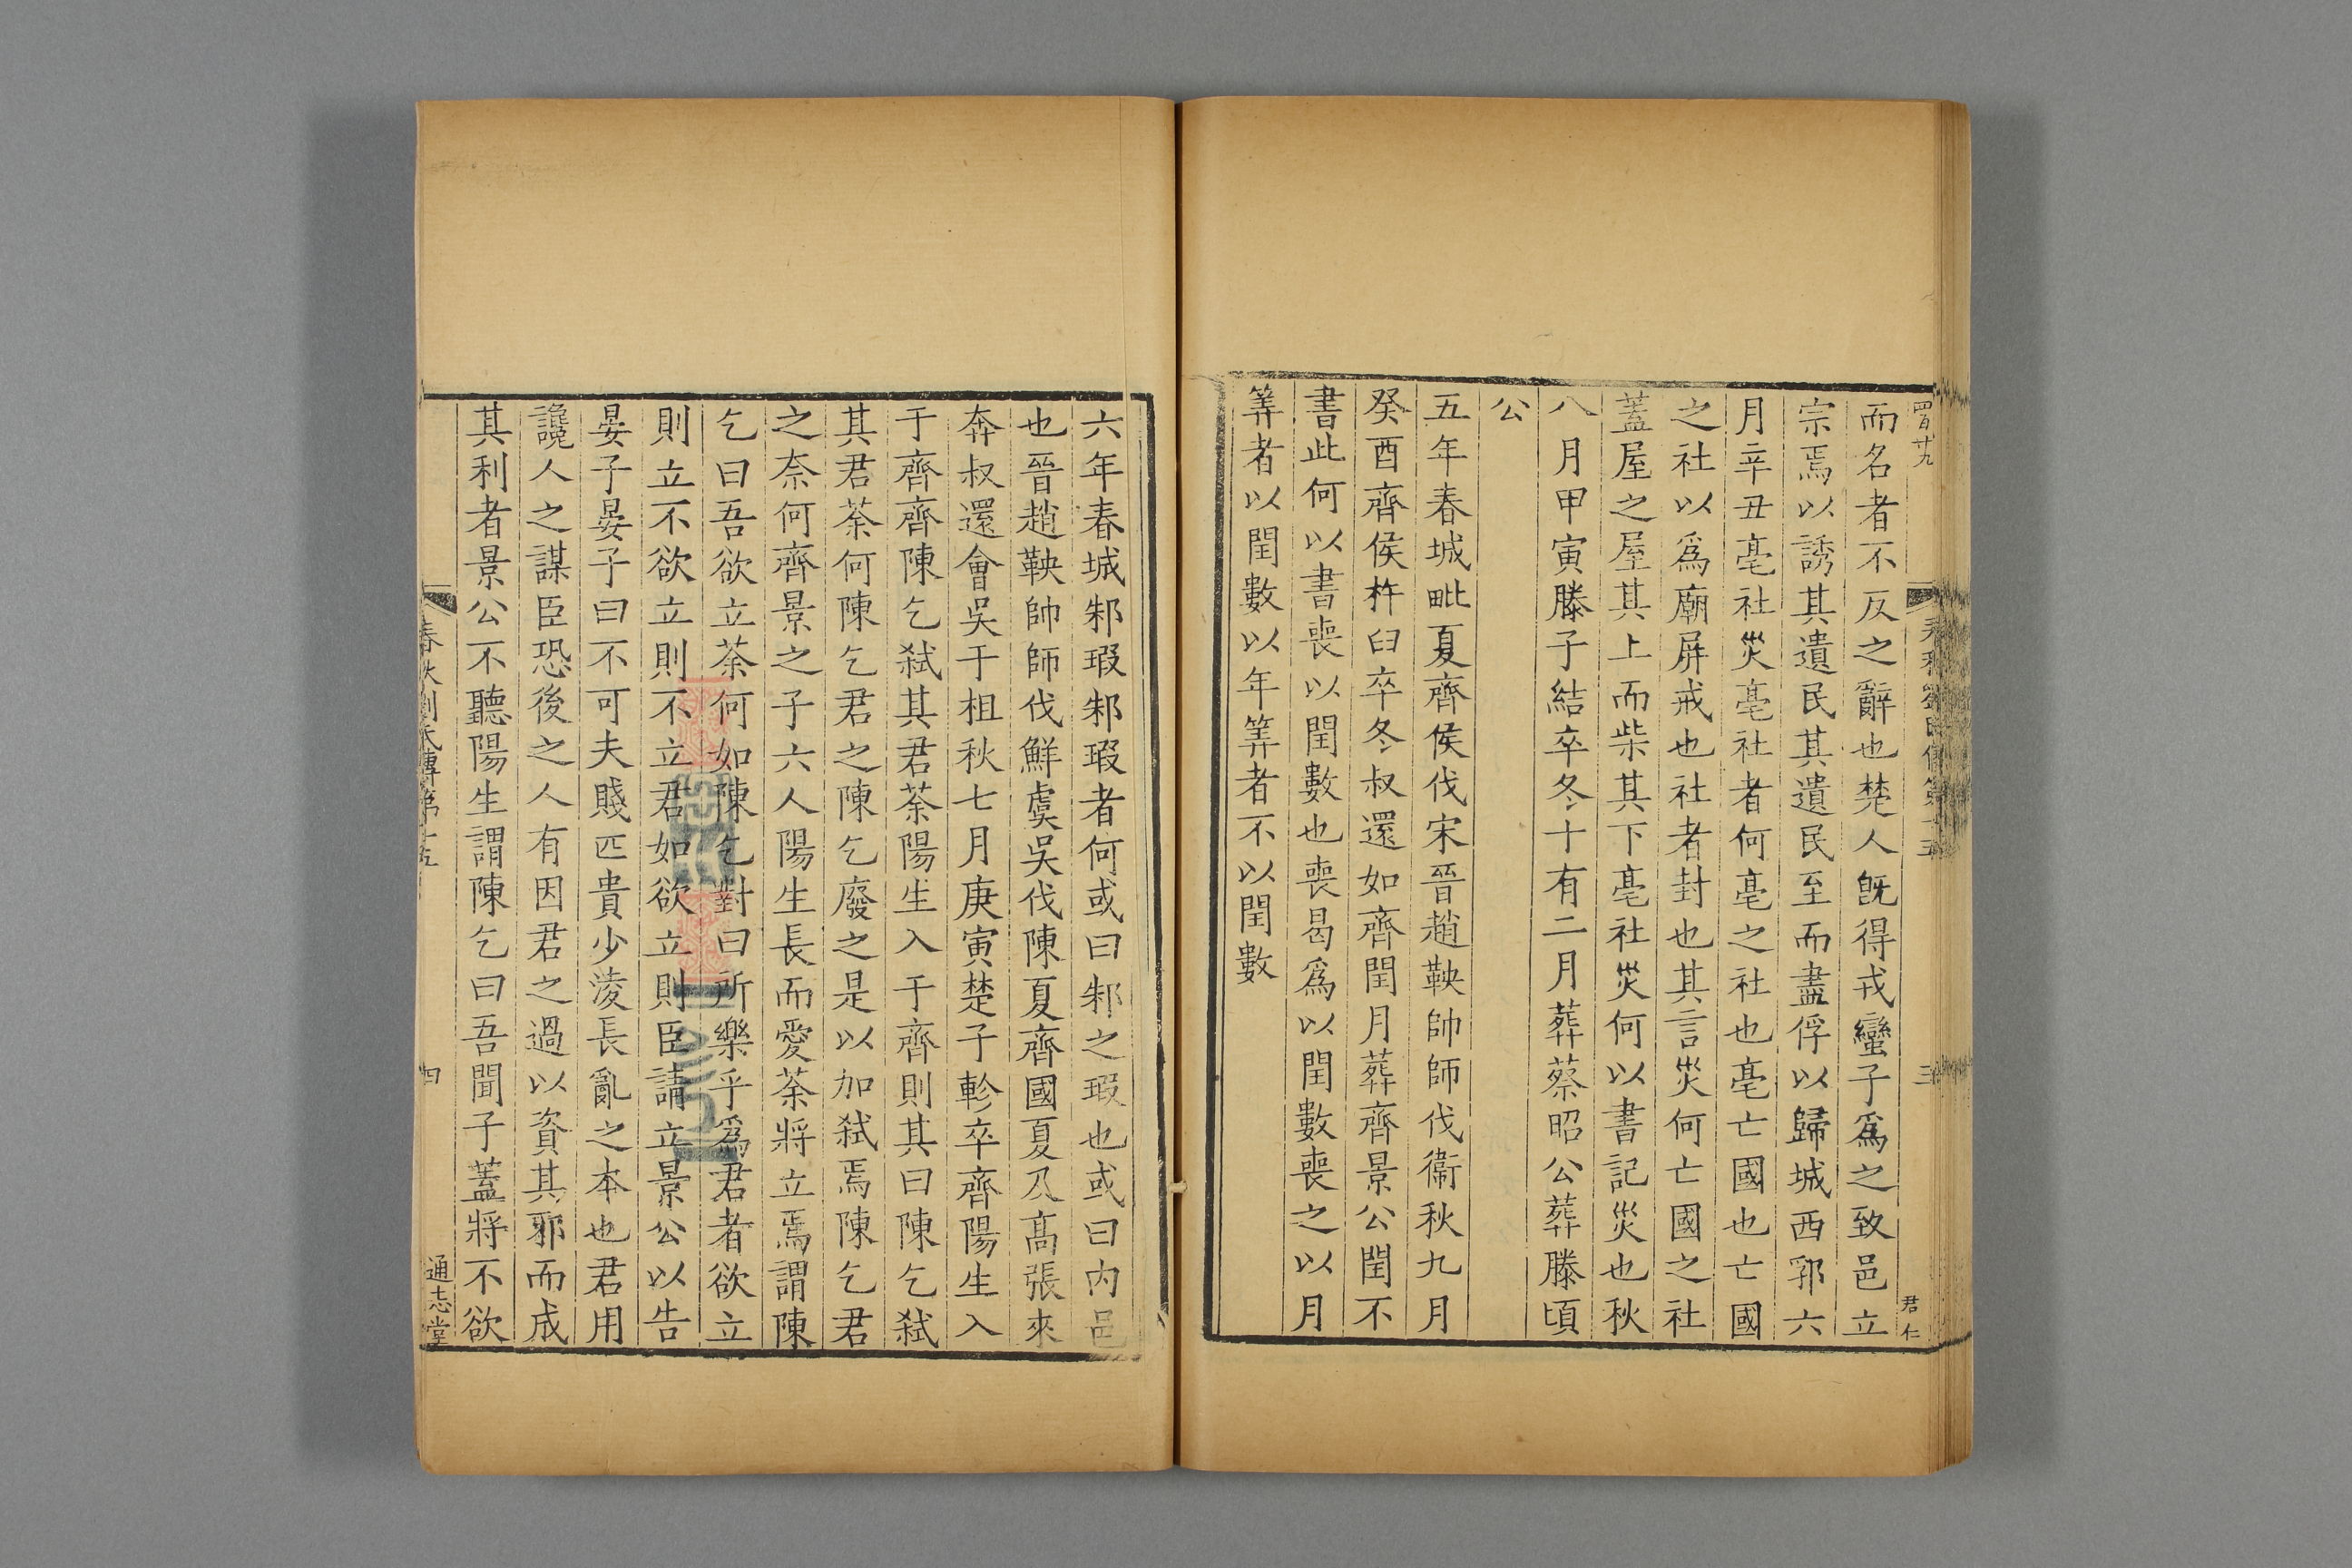 四百廿九
君仁
而名者不反之辭也楚人旣得戎蠻子爲之致邑立
宗焉以誘其遺民其遺民至而盡俘以歸城西郛六
月辛丑亳社災亳社者何亳之社也亳亡國也亡國
之社以爲廟屏戒也社者封也其言災何亡國之社
蓋屋之屋其上而柴其下亳社災何以書記災也秋
八月甲寅滕子結卒冬十有二月葬蔡昭公葬滕頃
公
五年春城毗夏齊侯伐宋晉趙鞅帥師伐衞秋九月
癸酉齊侯杵臼卒冬叔還如齊閏月葬齊景公閏不
書此何以書喪以閏數也喪曷爲以閏數喪之以月
筭者以閏數以年筭者不以閏數
六年春城邾瑕邾瑕者何或曰邾之瑕也或曰內邑
也晉趙鞅帥師伐鮮虞吳伐陳夏齊國夏及高張來
奔叔還會吳于柤秋七月庚寅楚子軫卒齊陽生入
于齊齊陳乞弒其君荼陽生入于齊則其曰陳乞弒
其君荼何陳乞君之陳乞廢之是以加弒焉陳乞君
之奈何齊景之子六人陽生長而愛荼將立焉謂陳
乞曰吾欲立荼何如陳乞對曰所樂乎爲君者欲立
則立不欲立則不立君如欲立則臣請立景公以告
晏子晏子曰不可夫賤匹貴少淩長亂之本也君用
讒人之謀臣恐後之人有因君之過以資其邪而成
其利者景公不聽陽生謂陳乞曰吾聞子蓋將不欲
春秋劉氏傳第十五
四
通志堂